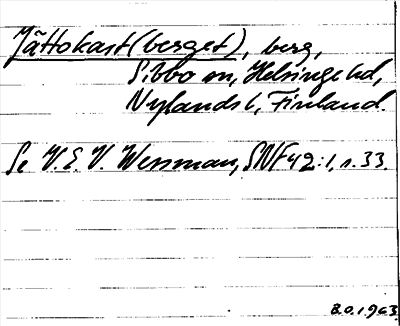 Jättokast (berget), berg,
Sibbo sn, Helsinge hd,
Nylands l, Finland.
Se V. E. V. Wessman, SNF 42:1, s. 33.
B.O. 1963